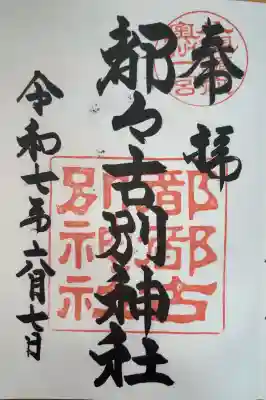 奉拝
都々古別神社
都都古別神社
令和七年六月七日